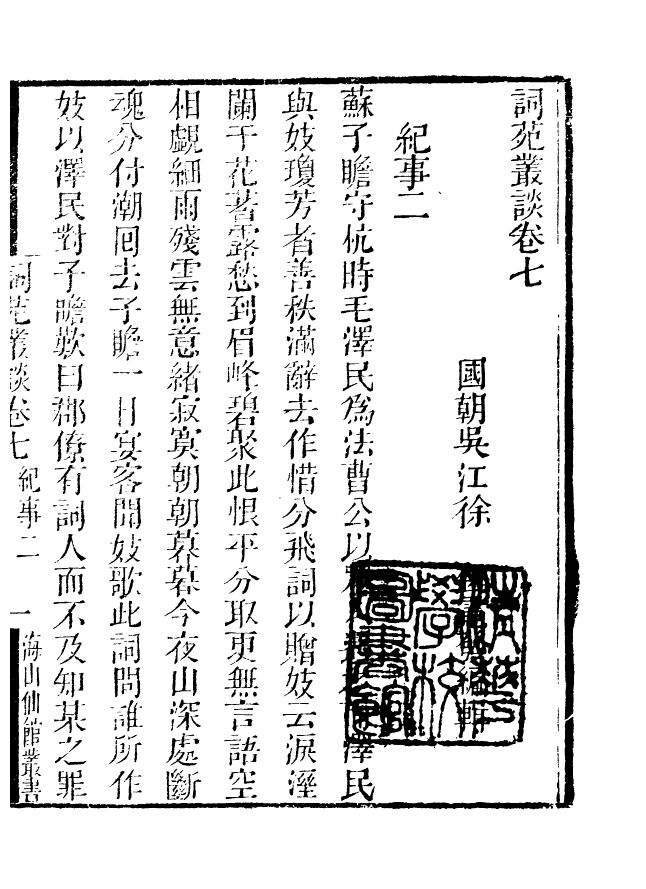 詞苑叢談卷七
國朝吳江徐編輯
紀事二
蘇子瞻守杭時毛澤民為法曹公以澤民
與妓瓊芳者善秩滿辭去作惜分飛詞以贈妓云淚溼
闌干花著露愁到眉峰碧聚此恨平分取更無言語空
相覷細雨殘雲無意緒寂寞朝朝暮暮今夜山深處斷
魂分付潮囘去子瞻一日宴客聞妓歌此詞問誰所作
妓以澤民對子瞻歎曰郡僚有詞人而不及知某之罪
詞苑叢談卷七 紀事二 一 海山仙館叢書
清華
學校
圖書館